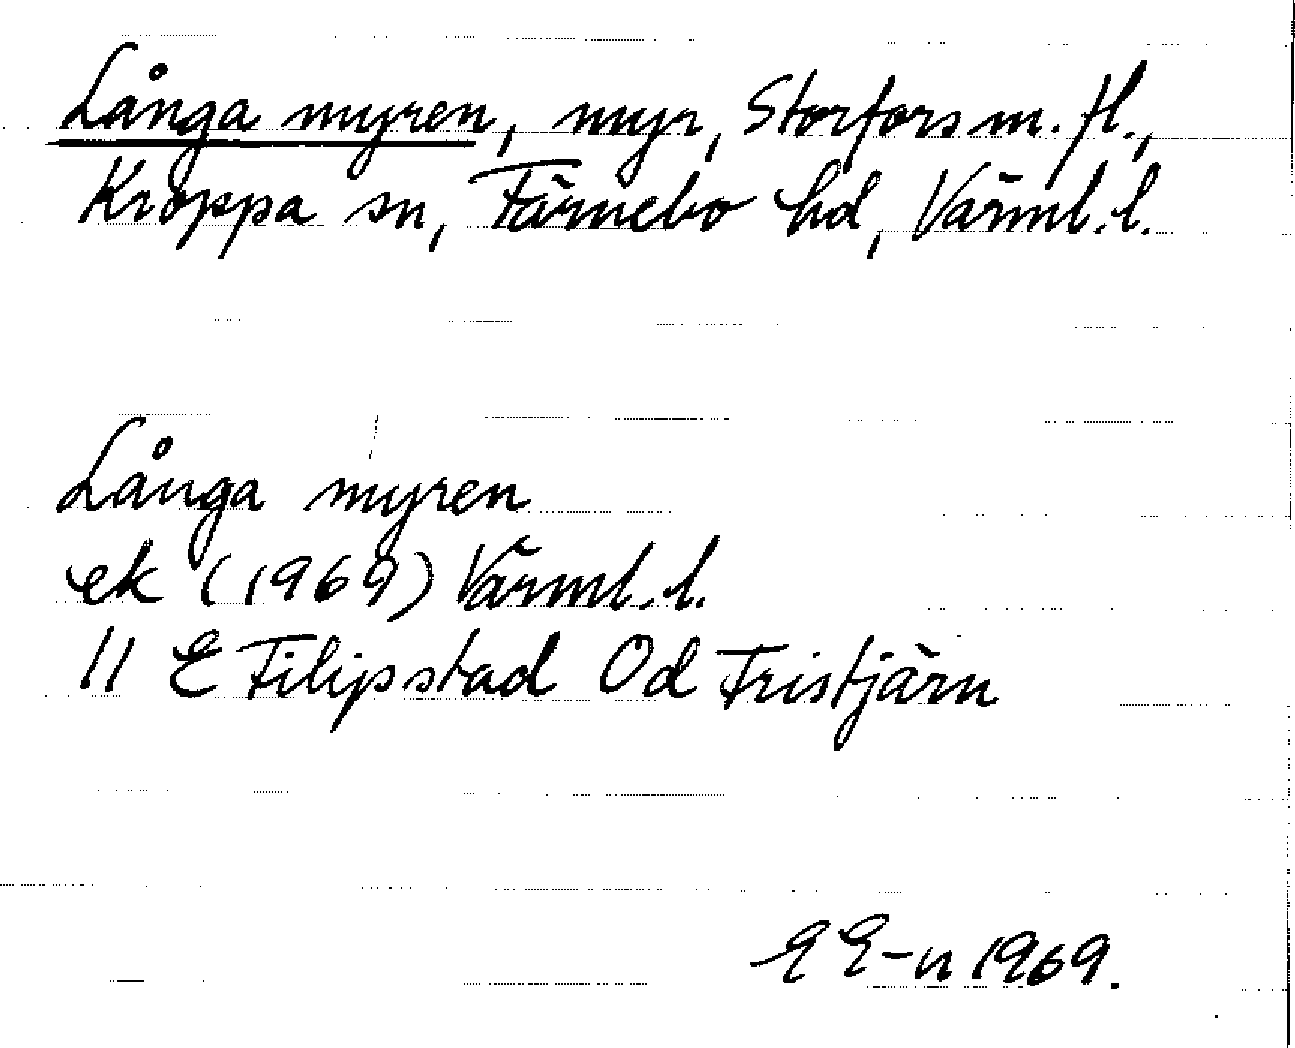 Långa myren, myr, Storfors m. fl.,
Kroppa sn, Färnebo hd, Värml. l.
Långa myren
ek (1969) Värml. l.
11 E Filipstad Od Tristjärn
E E-n 1969.